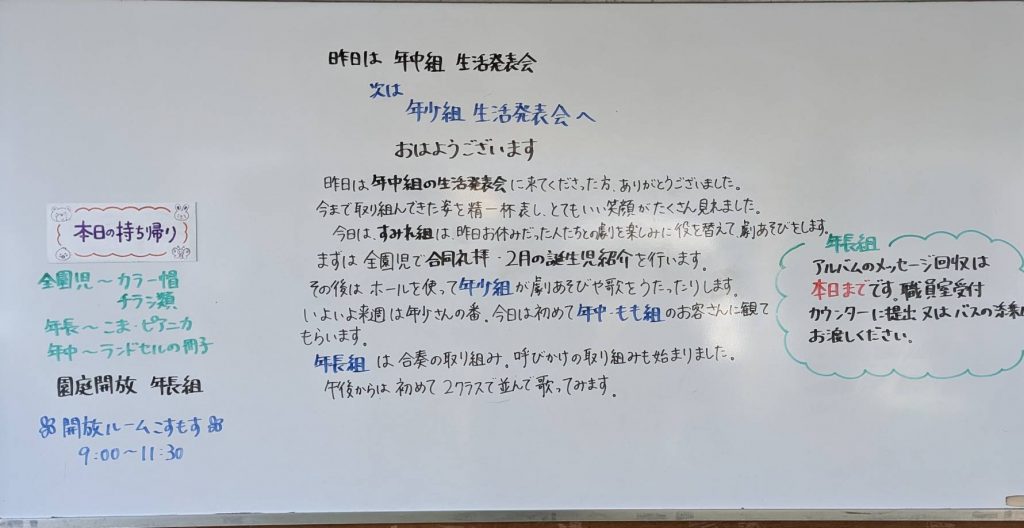 昨日は 年中組 生活発表会
次は
年少組 生活発表会へ
おはようございます
昨日は年中組の生活発表会に来てくださった方、ありがとうございました。
今まで取り組んできた姿を精一杯表し、とてもいい笑顔がたくさん見れました。
今日は、すみれ組は、昨日お休みだった人たちとの劇を楽しみに役を替えて、劇あそびをします。
まずは 全園児で合同礼拝・2月の誕生児紹介を行います。
その後は ホールを使って年少組が劇あそびや歌をうたったりします。
いよいよ来週は年少さんの番。今日は初めて年中・もも組のお客さんに観て
もらいます。
年長組 は 合奏の取り組み。呼びかけの取り組みも始まりました。
午後からは 初めて 2クラスで並んで歌ってみます。
本日の持ち帰り
全園児〜カラー帽
チラシ類
年長〜こま・ピアニカ
年中〜ランドセルの冊子
園庭開放 年長組
開放ルームこすもす
9:00〜11:30
年長組
アルバムのメッセージ回収は
本日までです。職員室受付
カウンターに提出又はバスの添乗
お渡しください。